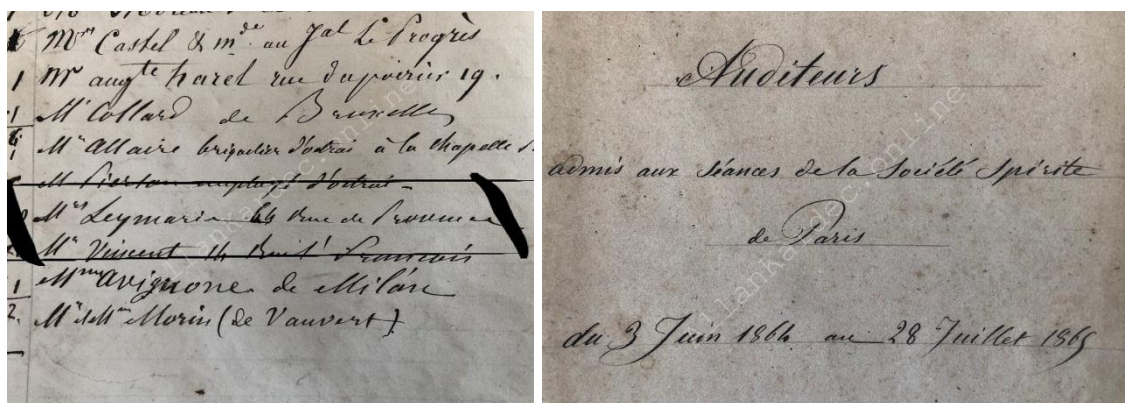 Mrs Castel & mde au Jal Le Progrès
1 Mr augte harel rue du poirier 19.
1 Mr Collard de Bruxelles
Mr Allaire brigadier d'octroi à la Chapelle
M Pierton employé d'octroi
Mrs Leymarie 64 rue de Provence
Mr Vincent 14
1 Mme Avignone de Milan
2. Mr et Mme Morin (de Vauvert)
Auditeurs
admis aux séances de la Société Spirite
de Paris
du 3 Juin 1864 au 28 Juillet 1865
allankardec.online
allankardec.online